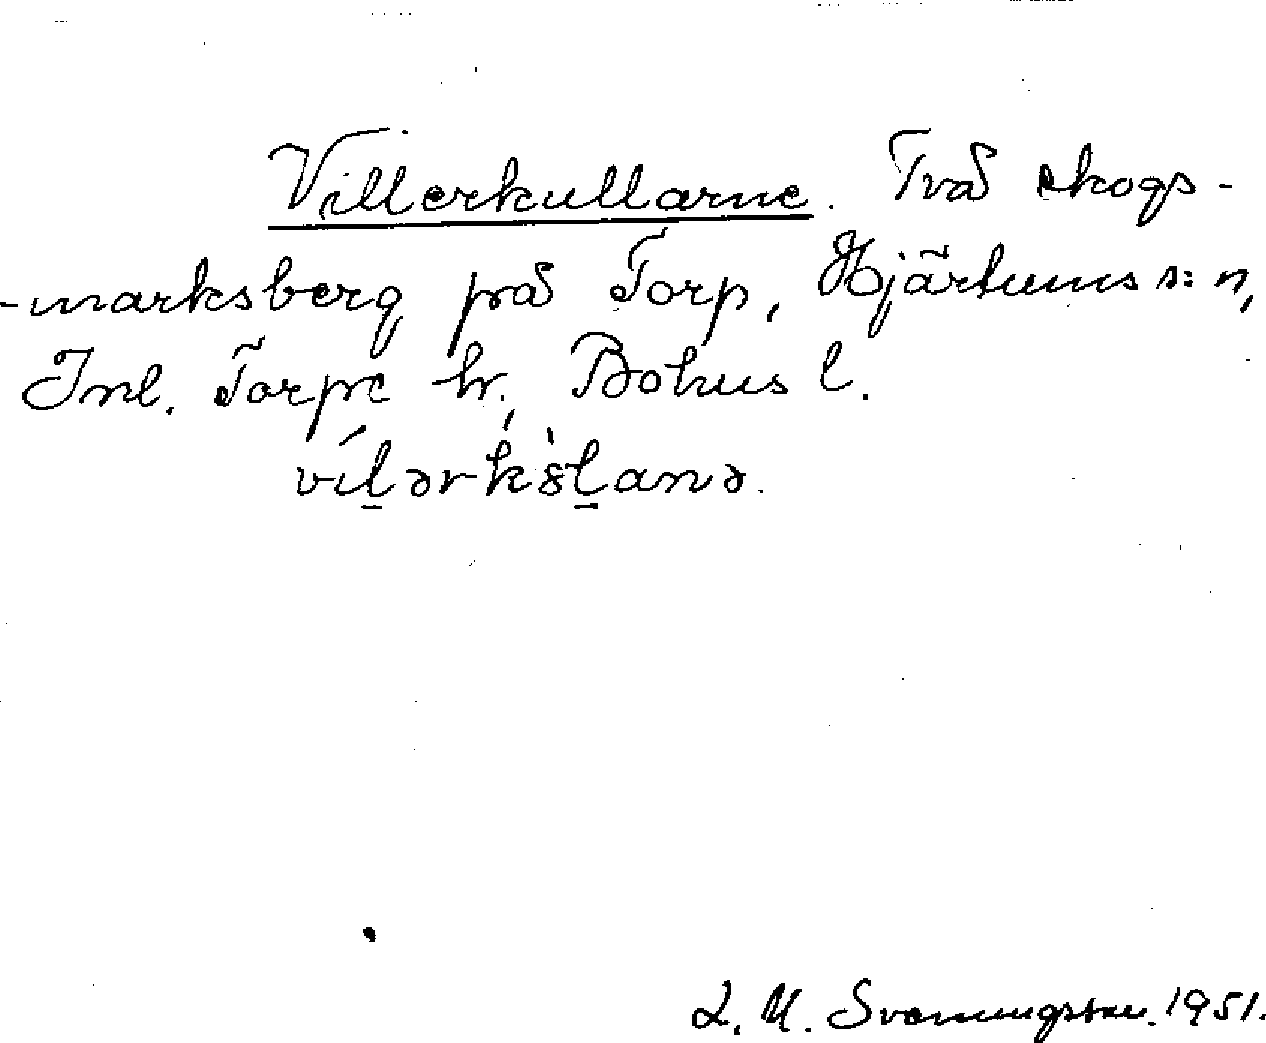 Villerkullarne. Två skogs-
-marksberg på Torp, Hjärtums s:n,
Inl. Torpe hr, Bohus l.
L. M. Svenungsson. 1951.